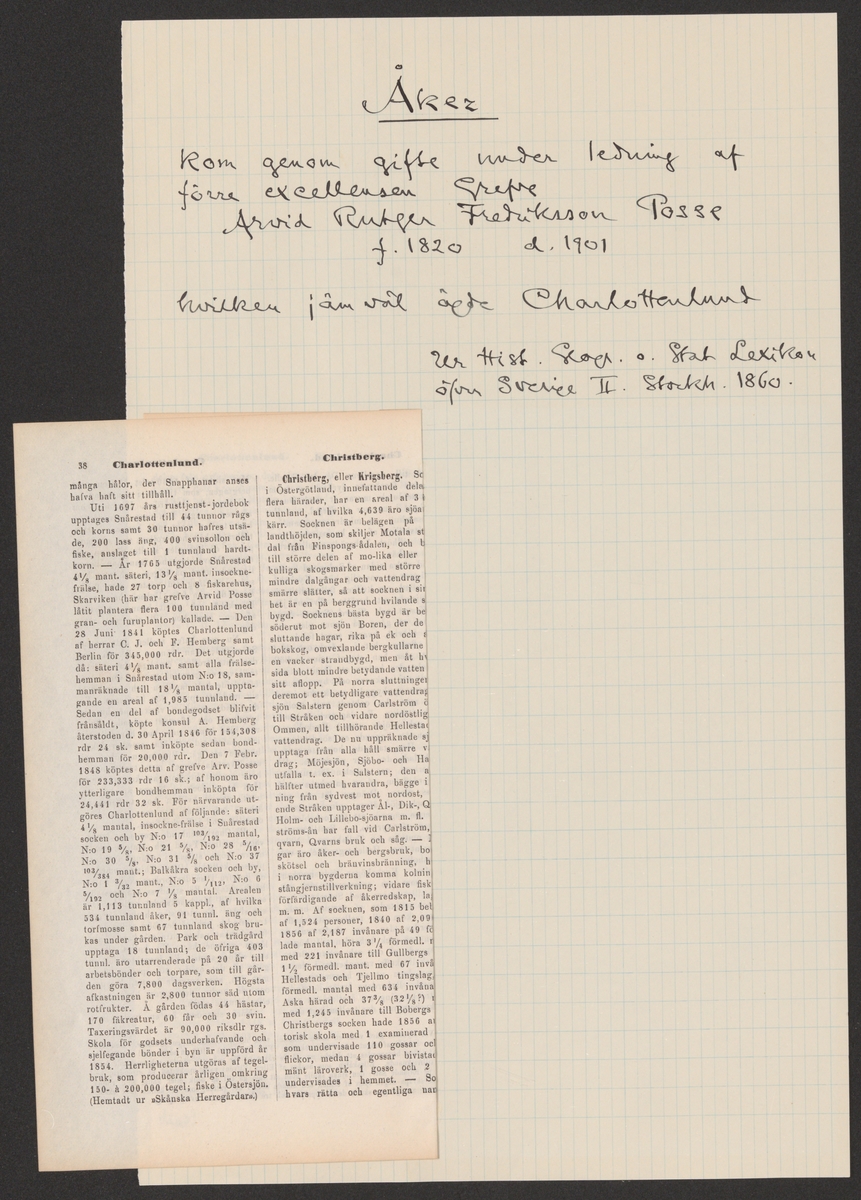 Åker
kom genom gifte under ledning af
förre excellensen Grefve
Arvid Rutger Fredriksson Posse
f. 1820 d. 1901
hvilken jämväl ägde Charlottenlund
Ur Hist. Geogr. o. Stat Lexikon
öfver Sverige II. Stockh. 1860.
38 Charlottenlund.
många hålor, der Snapphanar anses
hafva haft sitt tillhåll.
Uti 1697 års rusttjenst-jordebok
upptages Snårestad till 44 tunnor rågs
och korns samt 30 tunnor hafres utsä-
de, 200 lass äng, 400 svinsollon och
fiske, anslaget till 1 tunnland hardt-
korn. — År 1765 utgjorde Snårestad
4 1/8 mant. säteri, 13 1/8 mant. insockne-
frälse, hade 27 torp och 8 fiskarehus,
Skarviken (här har grefve Arvid Posse
låtit plantera flera 100 tunnland med
gran- och furuplantor) kallade. — Den
28 Juni 1841 köptes Charlottenlund
af herrar C. J. och F. Hemberg samt
Berlin för 345,000 rdr. Det utgjorde
då: säteri 4 1/8 mant. samt alla frälse-
hemman i Snårestad utom N:o 18, sam-
manräknade till 18 1/8 mantal, uppta-
gande en areal af 1,985 tunnland. —
Sedan en del af bondegodset blifvit
frånsåldt, köpte konsul A. Hemberg
återstoden d. 30 April 1846 för 154,308
rdr 24 sk. samt inköpte sedan bond-
hemman för 20,000 rdr. Den 7 Febr.
1848 köptes detta af grefve Arv. Posse
för 233,333 rdr 16 sk.; af honom äro
ytterligare bondhemman inköpta för
24,441 rdr 32 sk. För närvarande ut-
göres Charlottenlund af följande: säteri
4 1/8 mantal, insockne-frälse i Snårestad
socken och by N:o 17 103/192 mantal,
N:o 19 5/8, N:o 21 5/8, N:o 28 5/16,
N:o 30 5/8, N:o 31 5/8 och N:o 37
103/384 mant.; Balkåkra socken och by,
N:o 1 3/32 mant., N:o 5 1/112, N:o 6
5/192 och N:o 7 1/8 mantal. Arealen
är 1,113 tunnland 5 kappl., af hvilka
534 tunnland åker, 91 tunnl. äng och
torfmosse samt 67 tunnland skog bru-
kas under gården. Park och trädgård
upptaga 18 tunnland; de öfriga 403
tunnl. äro utarrenderade på 20 år till
arbetsbönder och torpare, som till går-
den göra 7,800 dagsverken. Högsta
afkastningen är 2,800 tunnor säd utom
rotfrukter. Å gården födas 44 hästar,
170 fäkreatur, 60 får och 30 svin.
Taxeringsvärdet är 90,000 riksdlr rgs.
Skola för godsets underhafvande och
sjelfegande bönder i byn är uppförd år
1854. Herrligheterna utgöras af tegel-
bruk, som producerar årligen omkring
150- à 200,000 tegel; fiske i Östersjön.
(Hemtadt ur »Skånska Herregårdar».)
Christberg.
Christberg, eller Krigsberg. So
i Östergötland, innefattande dela
flera härader, har en areal af 3
tunnland, af hvilka 4,639 äro sjöa
kärr. Socknen är belägen på
landthöjden, som skiljer Motala st
dal från Finspongs-ådalen, och b
till större delen af mo-lika eller
kulliga skogsmarker med större
mindre dalgångar och vattendrag
smärre slätter, så att socknen i sin
het är en på berggrund hvilande s
bygd. Socknens bästa bygd är be
söderut mot sjön Boren, der de
sluttande hagar, rika på ek och
bokskog, omvexlande bergkullarne
en vacker strandbygd, men åt hv
sida blott mindre betydande vatten
sitt aflopp. På norra sluttninger
deremot ett betydligare vattendrag
sjön Salstern genom Carlström o
till Stråken och vidare nordöstlig
Ommen, allt tillhörande Hellestad
vattendrag. De nu uppräknade sj
upptaga från alla håll smärre v
drag; Möjesjön, Sjöbo- och Ha
utfalla t. ex. i Salstern; den a
hälfter utmed hvarandra, bägge i
ning från sydvest mot nordost,
ende Stråken upptager Ål-, Dik-, Q
Holm- och Lillebo-sjöarna m. fl.
ströms-ån har fall vid Carlström,
qvarn, Qvarns bruk och såg. —
gar äro åker- och bergsbruk, bo
skötsel och bränvinsbränning, h
i norra bygderna komma kolnin
stångjernstillverkning; vidare fisk
förfärdigande af åkerredskap, la
m. m. Af socknen, som 1815 bel
af 1,524 personer, 1840 af 2,09
1856 af 2,187 invånare på 49 fö
lade mantal, höra 3 1/4 förmedl.
med 221 invånare till Gullbergs
1 1/2 förmedl. mant. med 67 invå
Hellestads och Tjellmo tingslag,
förmedl. mantal med 634 invåna
Aska härad och 37 3/8 (32 1/8?)
med 1,245 invånare till Bobergs
Christbergs socken hade 1856 a
torisk skola med 1 examinerad
som undervisade 110 gossar oc
flickor, medan 4 gossar bivista
mänt läroverk, 1 gosse och 2
undervisades i hemmet. — So
hvars rätta och egentliga nam